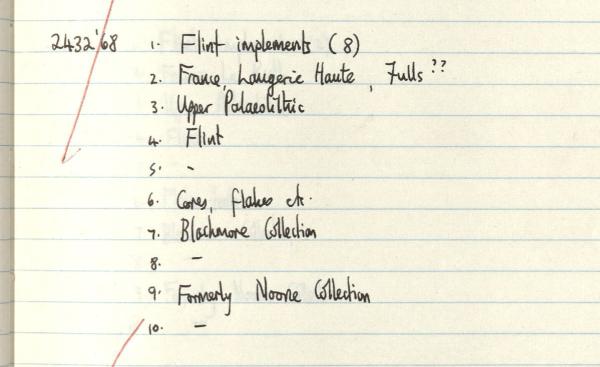 2432'68 1. Flint implements (8)
2. France, Laugerie Haute, Fulls ??
3. Upper Palaeolithic
4. Flint
5. -
6. Cores, flakes etc.
7. Blackmore Collection
8. -
9. Formerly Noone Collection
10. -